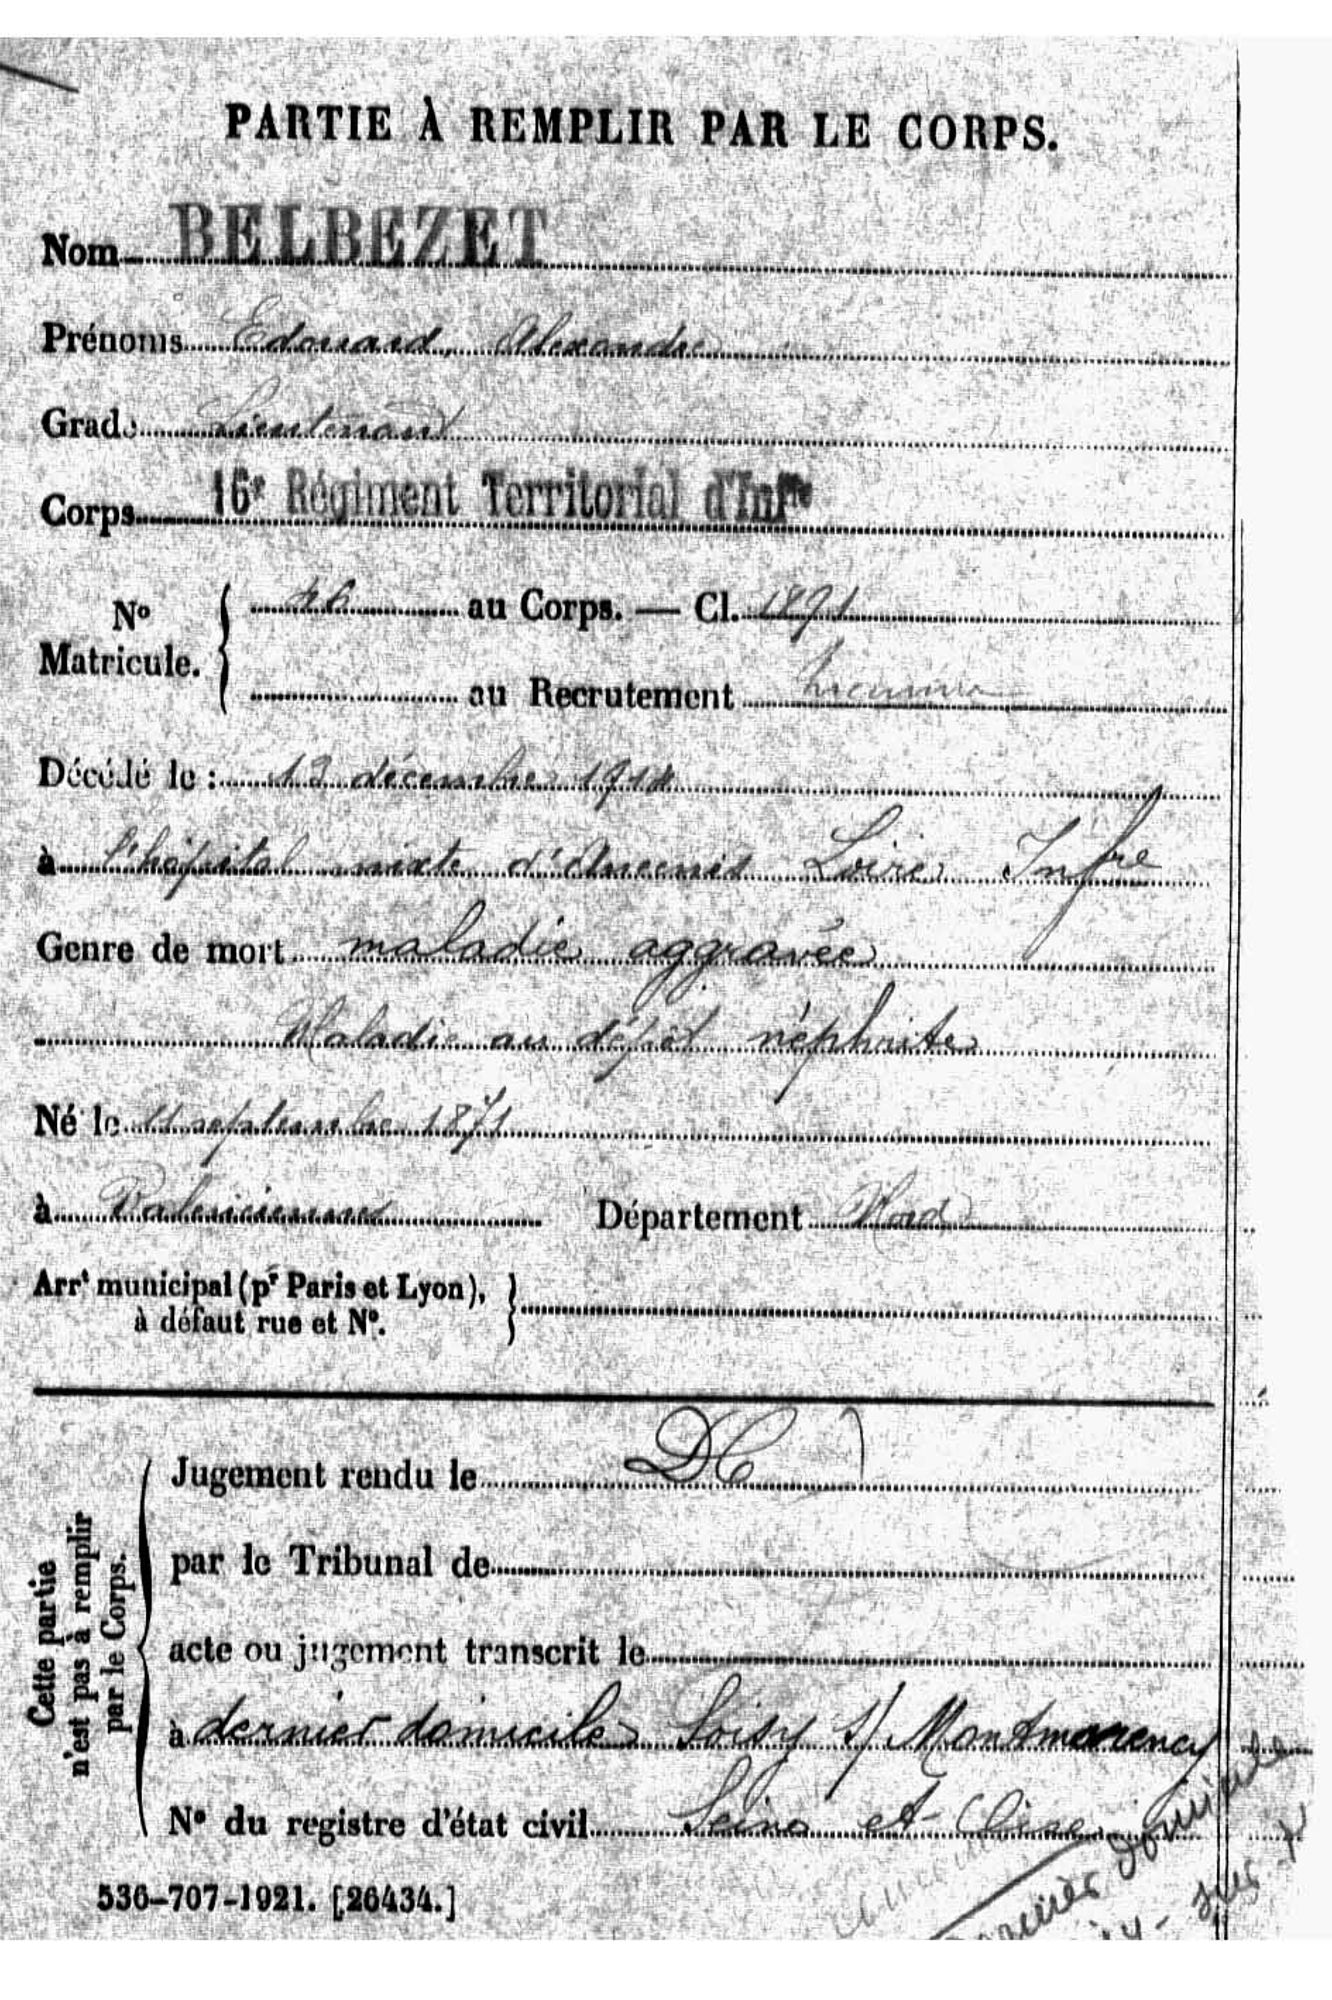 PARTIE À REMPLIR PAR LE CORPS.
Nom BELBEZET
Prénoms Edouard Alexandre
Grade Lieutenant
Corps 16e Régiment Territorial d'Infie
No Matricule. 46 au Corps. — Cl. 1891
au Recrutement
Décédé le : 13 décembre 1914
à l'hôpital mixte d'Ancenis Loire Infre
Genre de mort maladie aggravée
Maladie au dépôt néphrite
Né le 11 septembre 1871
à Valenciennes Département Nord
Arrt municipal (pr Paris et Lyon),
à défaut rue et No.
Cette partie
n'est pas à remplir
par le Corps.
Jugement rendu le DC
par le Tribunal de
acte ou jugement transcrit le
à dernier domicile Soisy s/ Montmorency
No du registre d'état civil Seine et Oise
dernier domicile
536-707-1921. [26434.]